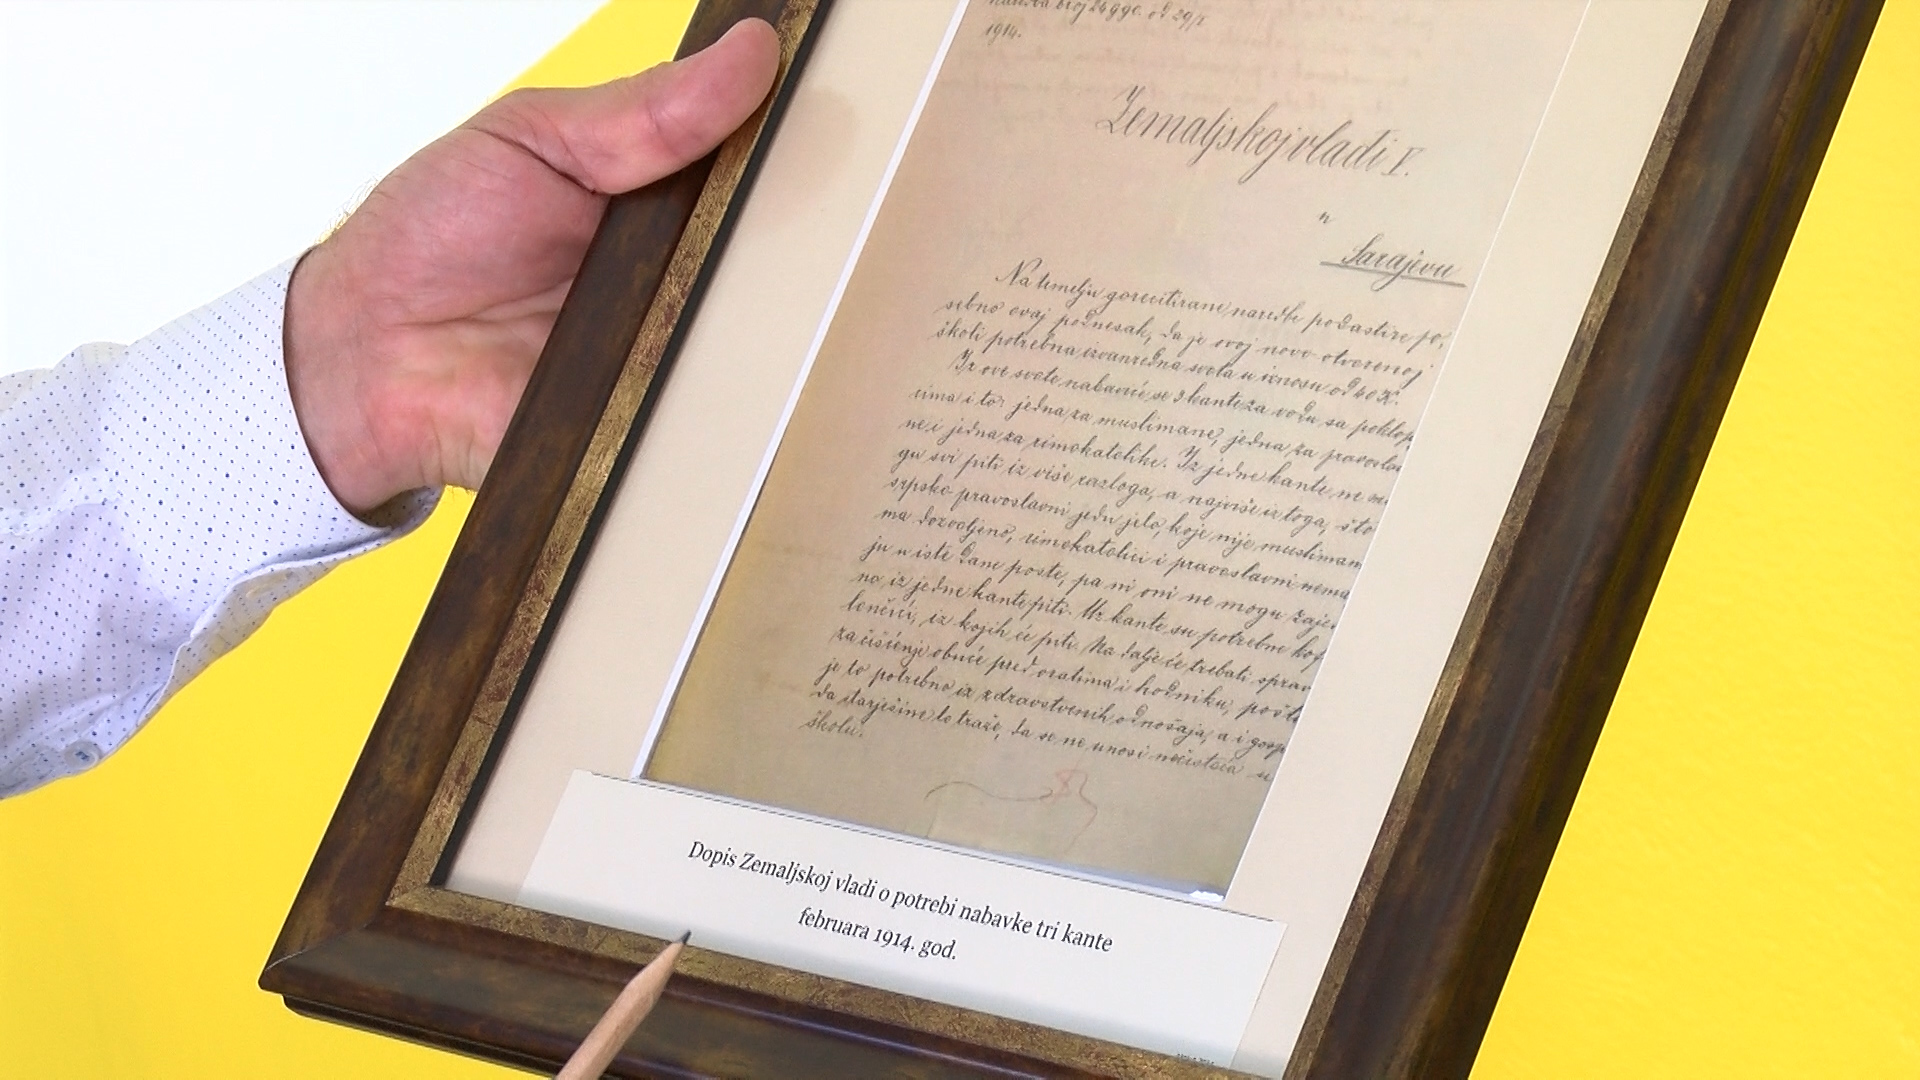 1914.
Zemaljskoj vladi I.
u
Sarajevu
Na temelju gorecitirane naredbe podastire po,
sebno ovaj podnesak, da je ovoj novo otvorenoj
školi potrebna izvanredna svota u iznosu od 40 K.
Iz ove svote nabaviće se 3 kante za vodu sa poklop
cima i to: jedna za muslimane, jedna za pravosla
ne i jedna za rimokatolike. Iz jedne kante ne mo
gu svi piti iz više razloga, a najviše iz toga, što
srpsko pravoslavni jedu jelo, koje nije musliman
ma dozvoljeno, rimokatolici i pravoslavni nema
ju u iste dane poste, pa ni oni ne mogu zaje
no iz jedne kante piti. Uz kante su potrebne kof
lenčići, iz kojih će piti. Na dalje će trebati sprav
za čišćenje obuće pred vratima i hodniku, pošto
je to potrebno iz zdravstvenih odnošaja, a i gosp
da starješine to traže, da se ne unosi nečistoća u
školu.
Dopis Zemaljskoj vladi o potrebi nabavke tri kante
februara 1914. god.